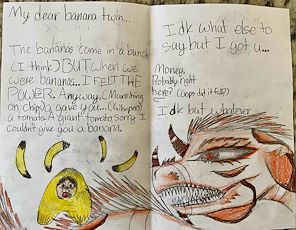 My dear banana twin...
The bananas come in a bunch
(I think) BUT when we
were bananas... I FELT THE
POWER. Anyway, (Munching
on chips) I gave you... (Whispers)
a tomato. A giant tomato sorry I
couldn't give you a banana.
I dk what else to
say but I got u...
Money.
Probably right
here? (Oops did it fall?)
I dk but whatever